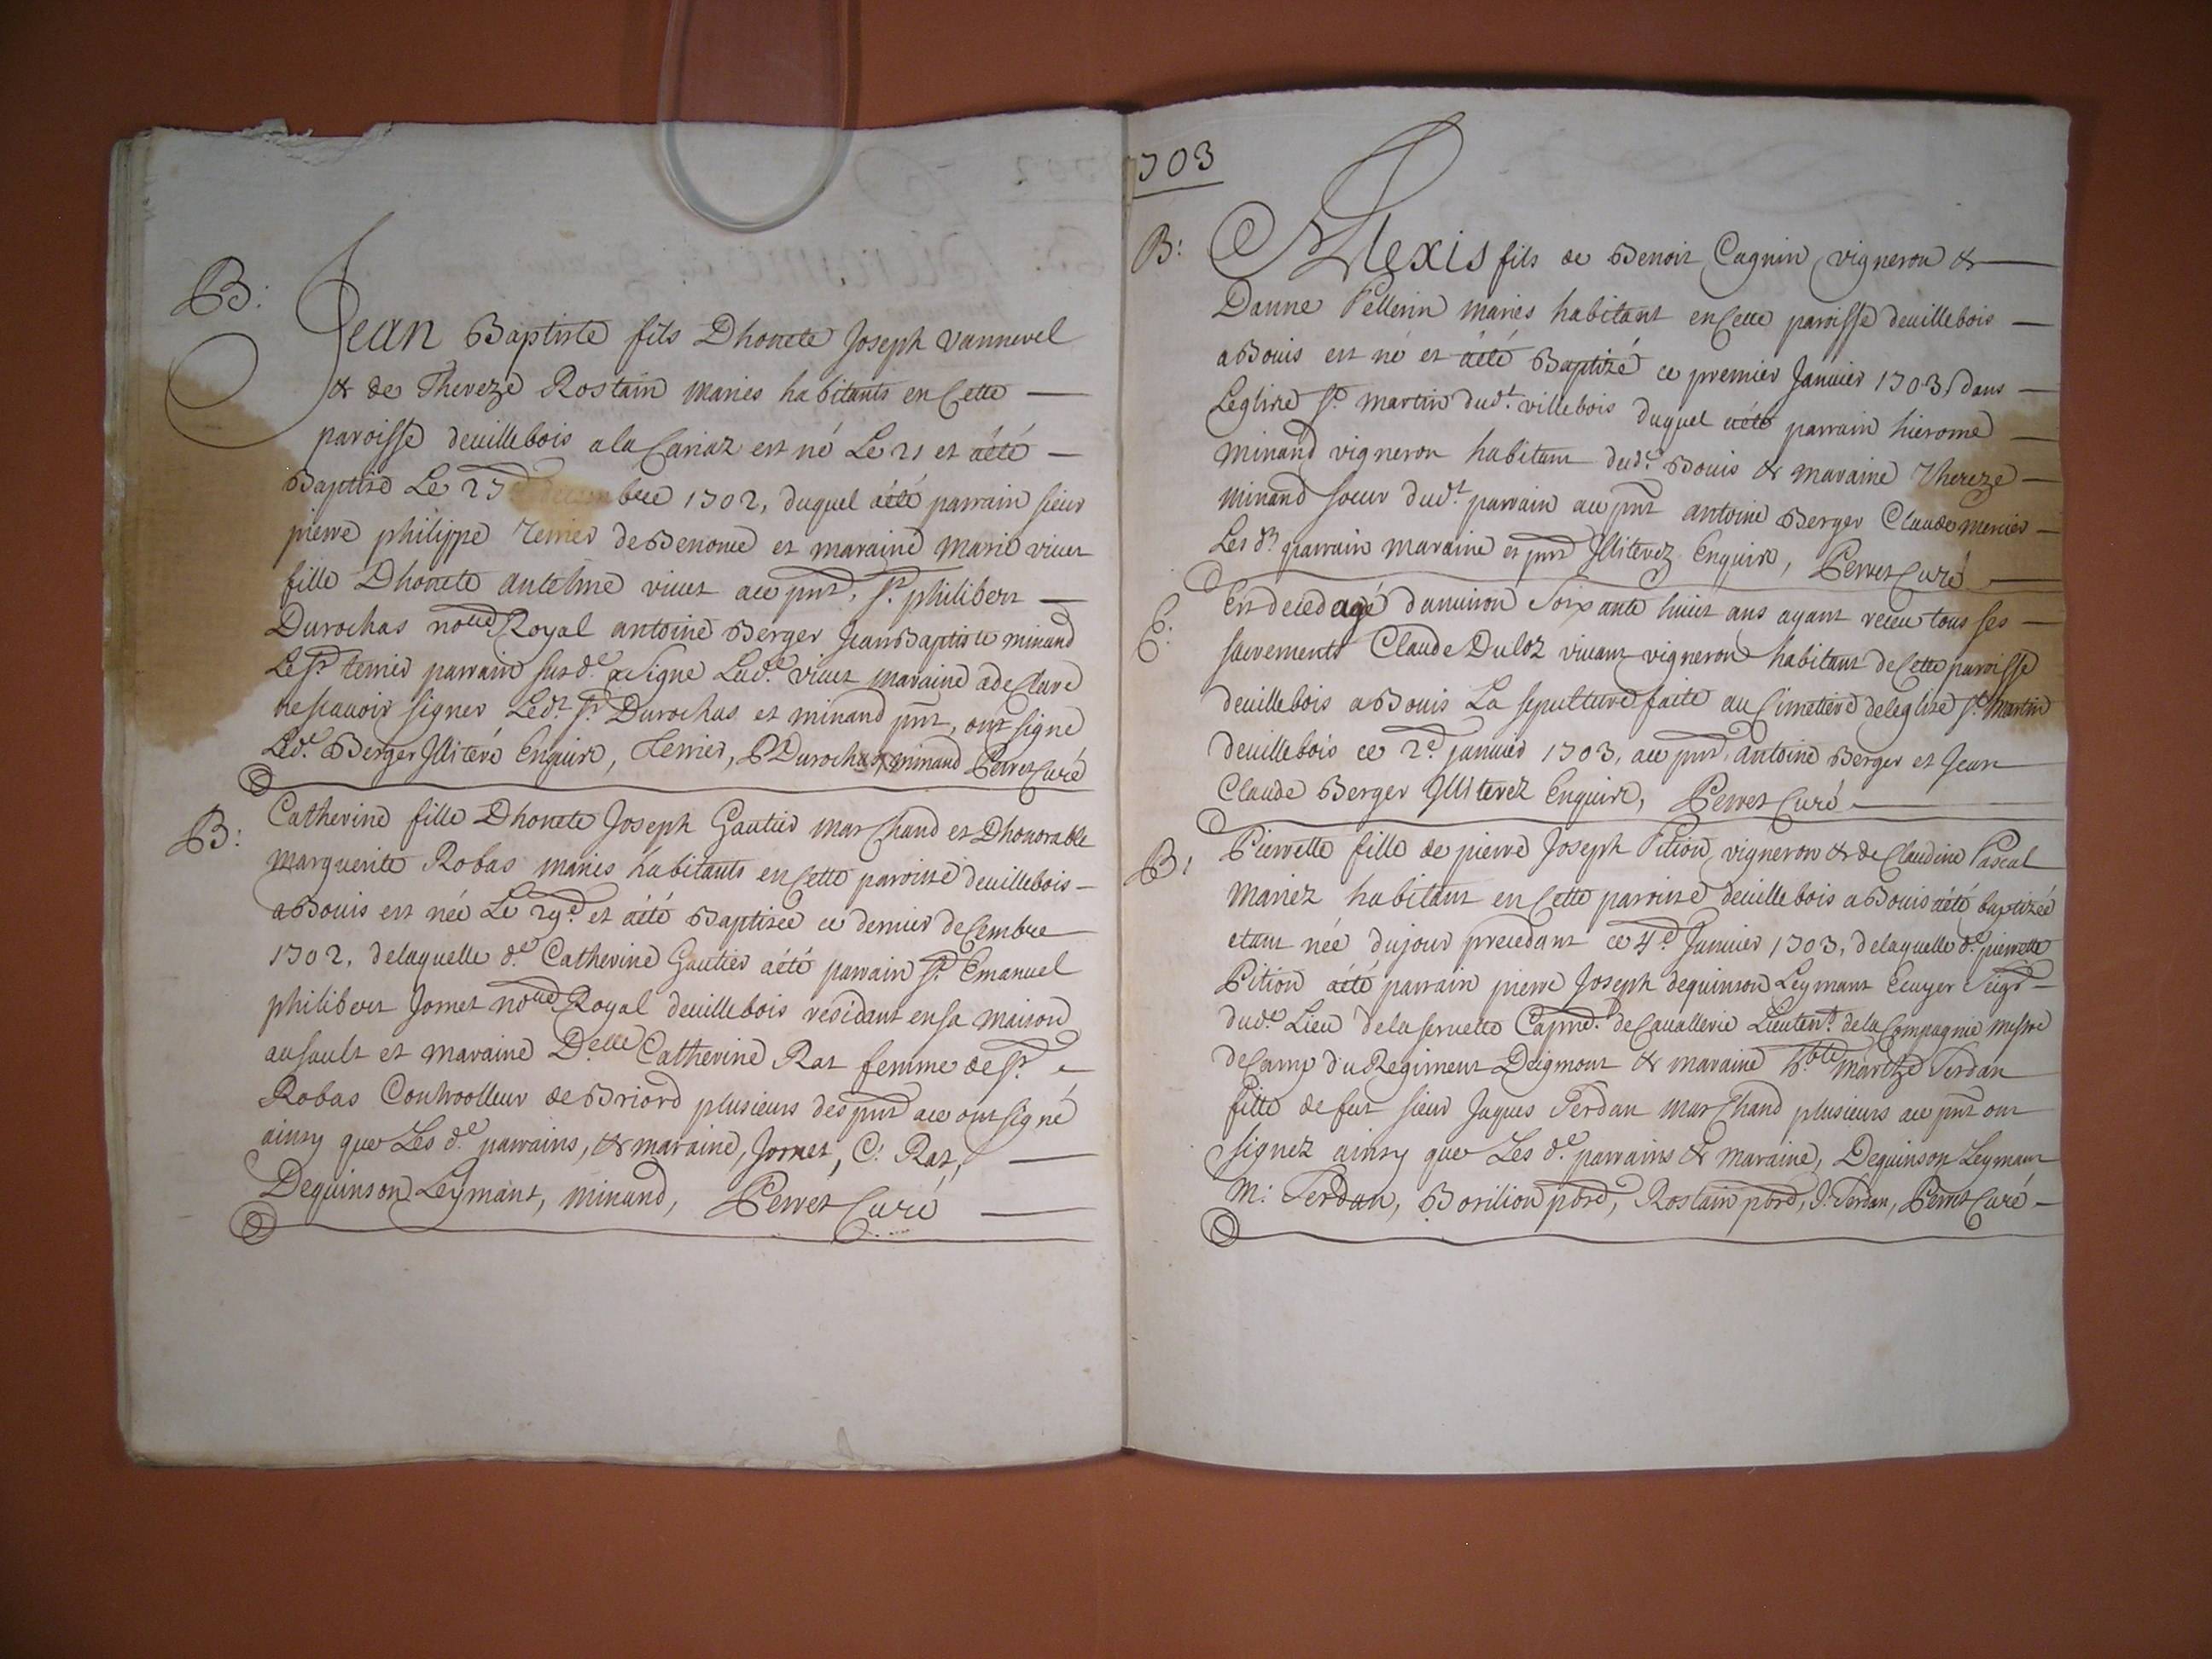 B:
Jean Baptiste fils Dhonete Joseph vannevel
& de Thereze Rostain maries habitants en Cette —
paroisse deuillebois a la Cariaz est né Le 21 et áété —
Baptisé Le 27e decembre 1702, duquel áété parrain sieur
pierre philippe terrier de Benonce et maraine Marie vicut
fille Dhonete antelme vicut au pnt, Sr. philibert —
Durochas notre Royal antoine Berger Jean Baptiste minand
Le Sr. terrier parrain susde. a Signe Lade. vicut maraine a declaré
nescauoir signer Ledt. Sr Durochas et minand pnt, ont signé
Lde. Berger Illiteré Enquire, Terrier, P Durochas, minand Perret Curé
B:
Catherine fille Dhonete Joseph Gautier marchand et Dhonorable
marguerite Robas maries habitants en Cette paroisse deuillebois —
a Bouis est née Le 29e. et áété Baptizée ce dernier deCembre
1702, delaquelle de. Catherine Gautier áété parrain Sr. Emanuel
philibert Jomet notre Royal deuillebois residant en sa maison
au sault et maraine Delle. Catherine Rat femme de Sr.
Robas Controolleur de Briord plusieurs des pnt au ont signé
ainsy que Les de. parrains, & maraine, Jomet, C: Rat, —
Dequinson Leymant, minand, Perret Curé —
1703
B:
Alexis fils de Benoit Cagnin vigneron & —
Danne Pellerin maries habitant en Cette paroisse deuillebois —
a Bouis est né et áété Baptizé ce premier Januier 1703, dans —
Leglise St. martin dudt. villebois duquel áété parrain hierome —
minand vigneron habitant dudt. Bouis & maraine Thereze —
minand soeur dudt. parrain au pnt antoine Berger Claude menier —
Les dt. parrain maraine et pnt Illiterez Enquire, Perret Curé —
E:
Est deced agé danuiron Soixante huict ans ayant receu tous ses —
sacrements Claude Duloz viuant vigneron habitant de Cette paroisse
deuillebois a Bouis La sepulture faite au Cimetiere deleglise St. Martin
deuillebois ce 2e. januier 1703, au pnt. Antoine Berger et Jean
Claude Berger Illiterez Enquire, Perret Curé —
B:
Pierrette fille de pierre Joseph Pition vigneron & de Claudine Pascal
mariez habitant en Cette paroisse deuillebois a Bouis áété baptizée
etant née dujour precedant ce 4e. Januier 1703, delaquelle de. pierrette
Pition áété parrain pierre Joseph dequinson Leymant Ecuyer Seigr. —
dude. Lieu dela seruette Capne. de Cauallerie Lieutent. dela Compagnie mestre
de Camp du Regiment Deigmont & maraine hble. marthe Serdan
fille de feu sieur Jaques Serdan marchand plusieurs au pnt ont
signez ainsy que Les de. parrains & maraine, Dequinson Leymant
M: Serdan, Borilion pbre, Rostain pbre, J. Serdan, Perret Curé —